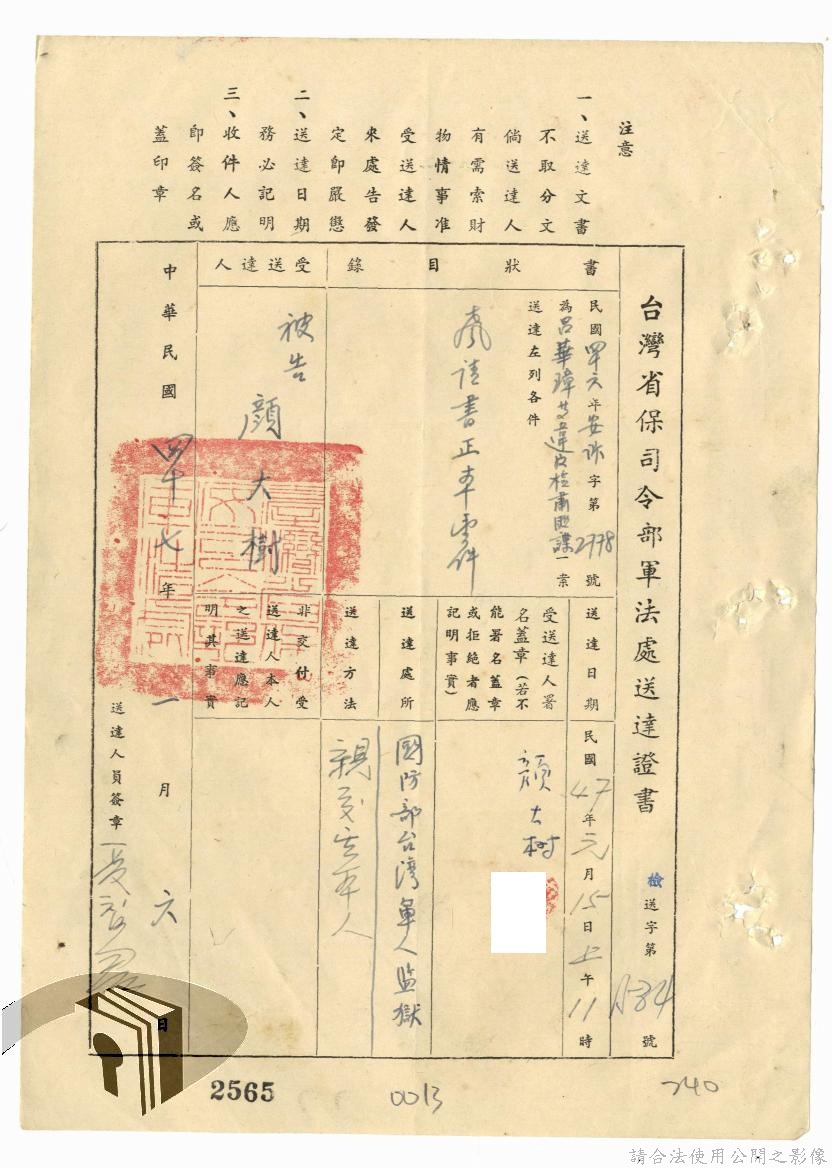 注意
一、送達文書
不取分文
倘送達人
有需索財
物情事准
受送達人
來處告發
定即嚴懲
二、送達日期
務必記明
三、收件人應
即簽名或
蓋印章
台灣省保司令部軍法處送達證書
檢送字第
號
書狀目錄
民國四六年安
字第2778號
為呂華璋等違反檢肅匪諜一案
送達左列各件
書正本壹件
受送達人
被告
顏大樹
送達日期
民國47年元月15日上午11時
受送達人署
名蓋章（若不
能署名蓋章
或拒絕者應
記明事實）
顏大樹
送達處所
國防部台灣軍人監獄
送達方法
親交其本人
非交付受
送達人本人
之送達應記
明其事實
中華民國四十七年一月六日
送達人員簽章
2565
0013
740
請合法使用公開之影像